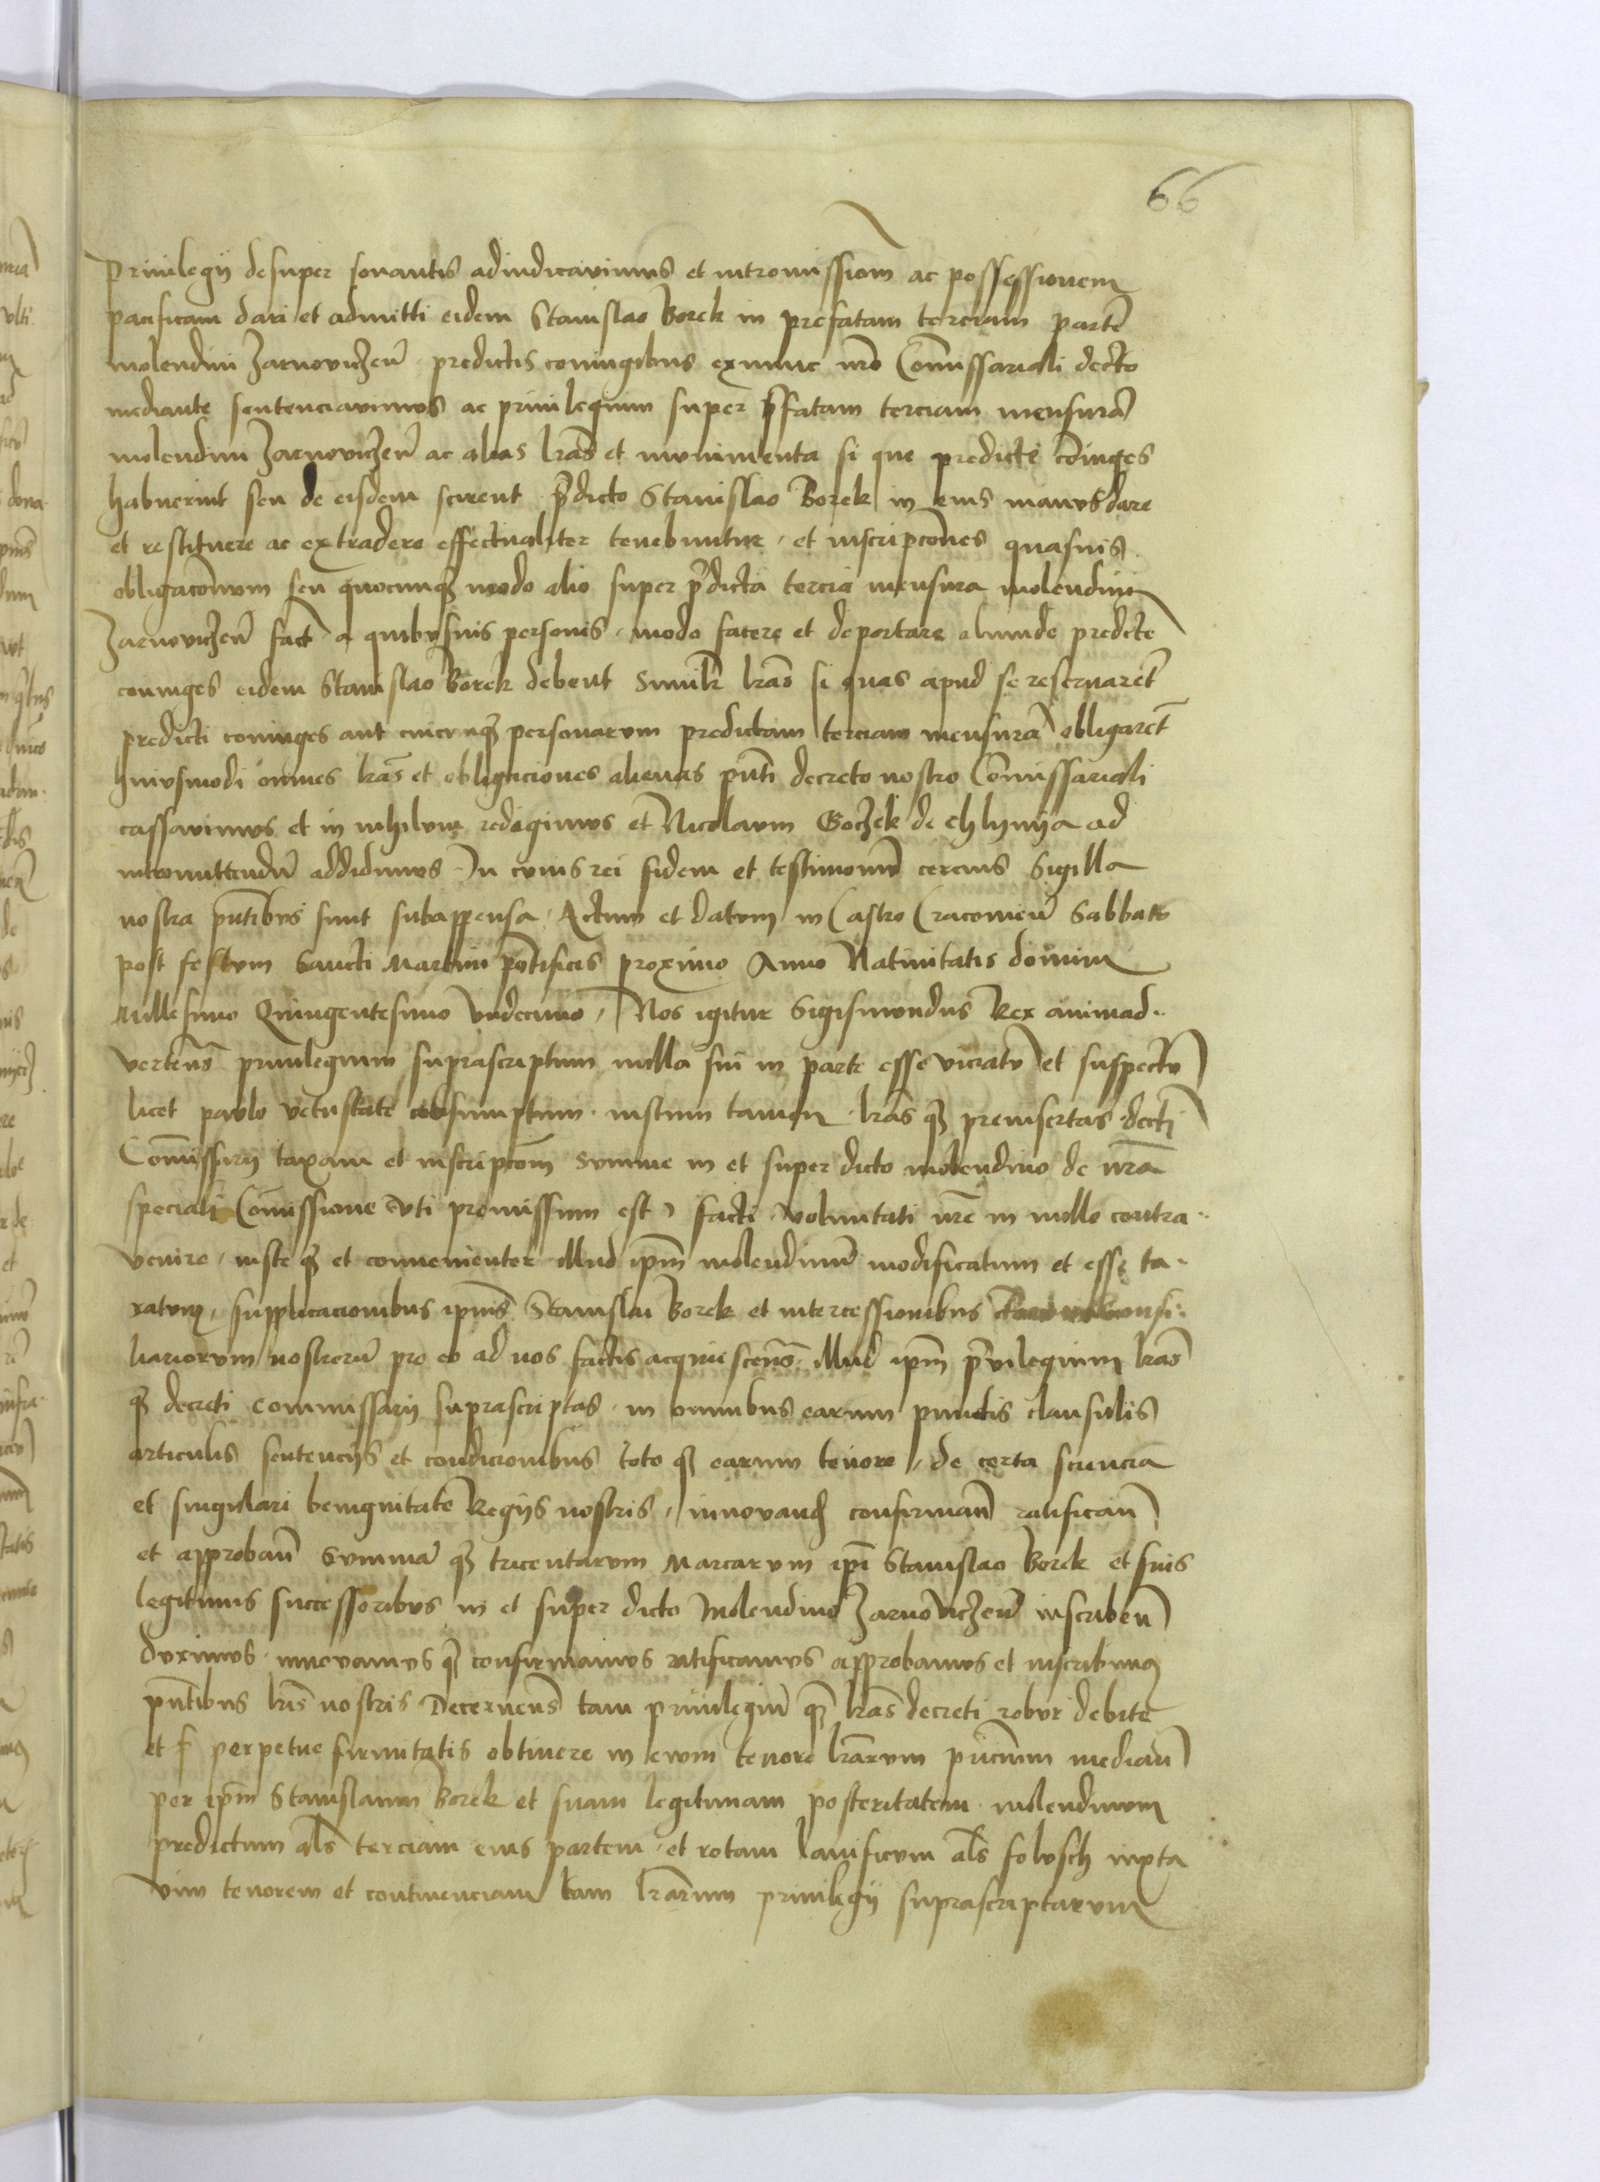 66
Priuilegij desuper sonantis adiudicavimus et intromissiom̄ ac possessionem
pacificam dari et admitti eidem Stanislao Borek in prefatam terciam partē
molendini Zarnoviczeñ predictis coniugibus exnunc nr̄o Com̄issariali decr̄to
mediante sentenciavimus ac priuilegium super p̄fatam terciam mensurā
molendini Zarnoviczeñ ac alias lr̄as et munimenta si que predicti cōiuges
habuerint seu de eisdem scirent p̄dicto Stanislao Borek in eius manus dare
et restituere ac extradere effectualiter tenebuntur et inscripcōnes quasuis
obligacōnum seu quocunqȝ modo alio super p̄dicta tercia mensura molendini
Zarnoviczeñ fact̄ a quibusuis personis modo facere et deportare aliunde predicte
coniuges eidem Stanislao Borek debent Similr̄ lr̄as si quas apud se reseruarēt
predicti coniuges aut cuicunqȝ personarum predictam terciam mensurā obligarēt
huiusmodi omnes lr̄as et obligaciones alienas pn̄ti decreto nostro Com̄issariali
cassavimus et in nihilum redegimus et Nicolaum Goczek de Chlynya ad
intromittendū addidimus In cuius rei fidem et testimoniū cercius Sigilla
nostra pn̄tibus sunt subappensa Actum et datum in Castro Cracovieñ Sabbato
post festum Sancti Martini pōtificis proximo Anno Natiuitatis domini
Millesimo Quingentesimo Vndecimo Nos igitur Sigismundus Rex animad..
vertens̄ priuilegium suprascriptum nulla sui in parte esse viciatū et suspectū
licet paulo vetustate consumptum iustum tamen lr̄as qȝ preinsertas decr̄ti
Com̄issarij taxam et inscripcōm Summe in et super dicto molendino de nr̄a
speciali Com̄issione vti premissum est facti voluntati nr̄e in nullo contra..
venire iuste qȝ et convenienter illud ip̄m molendinū modificatum et esse ta..
xatum supplicacionibus ipius̄ Stanislai Borek et intercessionibus consi..
liariorum nostrorū pro eo ad nos factis acquiescens̄ illud ip̄m p̄uilegium lr̄as
qȝ decreti commissarij suprascriptas in omnibus earum punctis clausulis
articulis sentencijs et condicionibus toto qȝ earum tenore de certa sciencia
et singulari benignitate Regijs nostris innovanđ confirmañ ratificañ
et approbañ Summā qȝ tricentarum Marcarum ip̄i Stanislao Borek et suis
legitimis successoribus in et super dicto Molendino Zarnoviczeñ inscribeñ
duximus innovamus qȝ confirmamus ratificamus approbamus et inscribimus
pn̄tibus lr̄is nostris Decernens̄ tam priuilegiū qȝ lr̄as decreti robur debite
et f perpetue firmitatis obtinere in evum tenore lr̄arum pn̄cium mediañ
per ip̄m Stanislaum Borek et suam legitimam posteritatem molendinum
predictum al̄s terciam eius partem et rotam lanificum al̄s folusch iuxta
vim tenorem et continenciam tam lr̄arum priuilegij suprascriptarum